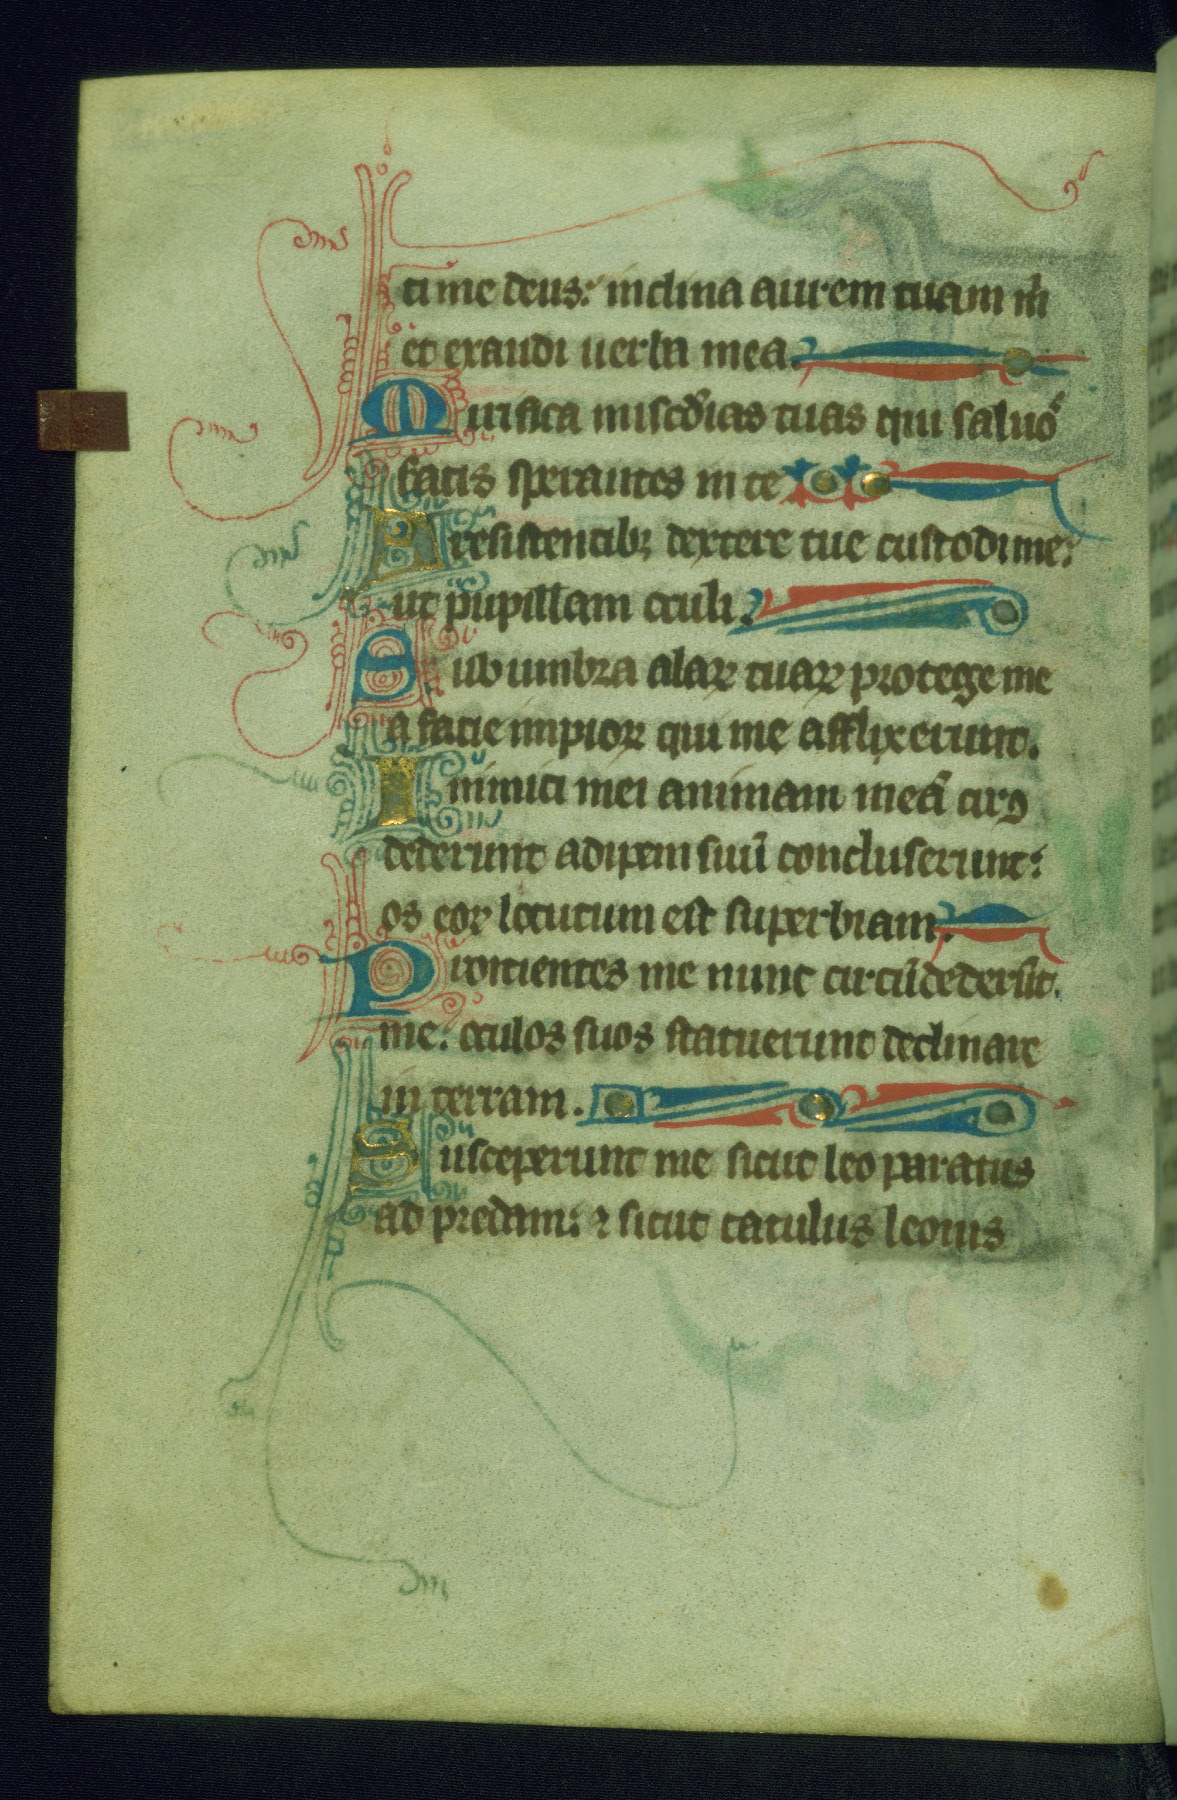 ti me deus: inclina aurem tuam m̄
et exaudi uerba mea.
Mirifica mis̄cdias tuas qui saluos
facis sperantes in te
A resistentib; dextere tue custodi me:
ut pupillam oculi.
Sub umbra alaꝝ tuaꝝ protege me
a facie impioꝝ qui me afflixerunt.
Inimici mei animam meā circū
dederunt adipem suū concluserunt:
os eoꝝ locutum est superbiam.
Proicientes me nunc circūdederūt
me: oculos suos statuerunt declinare
in terram.
Susceperunt me sicut leo paratus
ad predam: ⁊ sicut catulus leonis